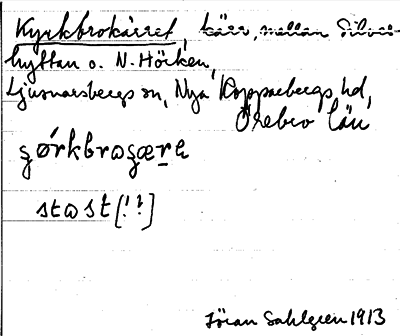 Kyrkbrokärret, kärr, mellan Silver-
hyttan o. N. Hörken,
Ljusnarsbergs sn, Nya Kopparbergs hd,
Örebro län
stast [!?]
Jöran Sahlgren 1913